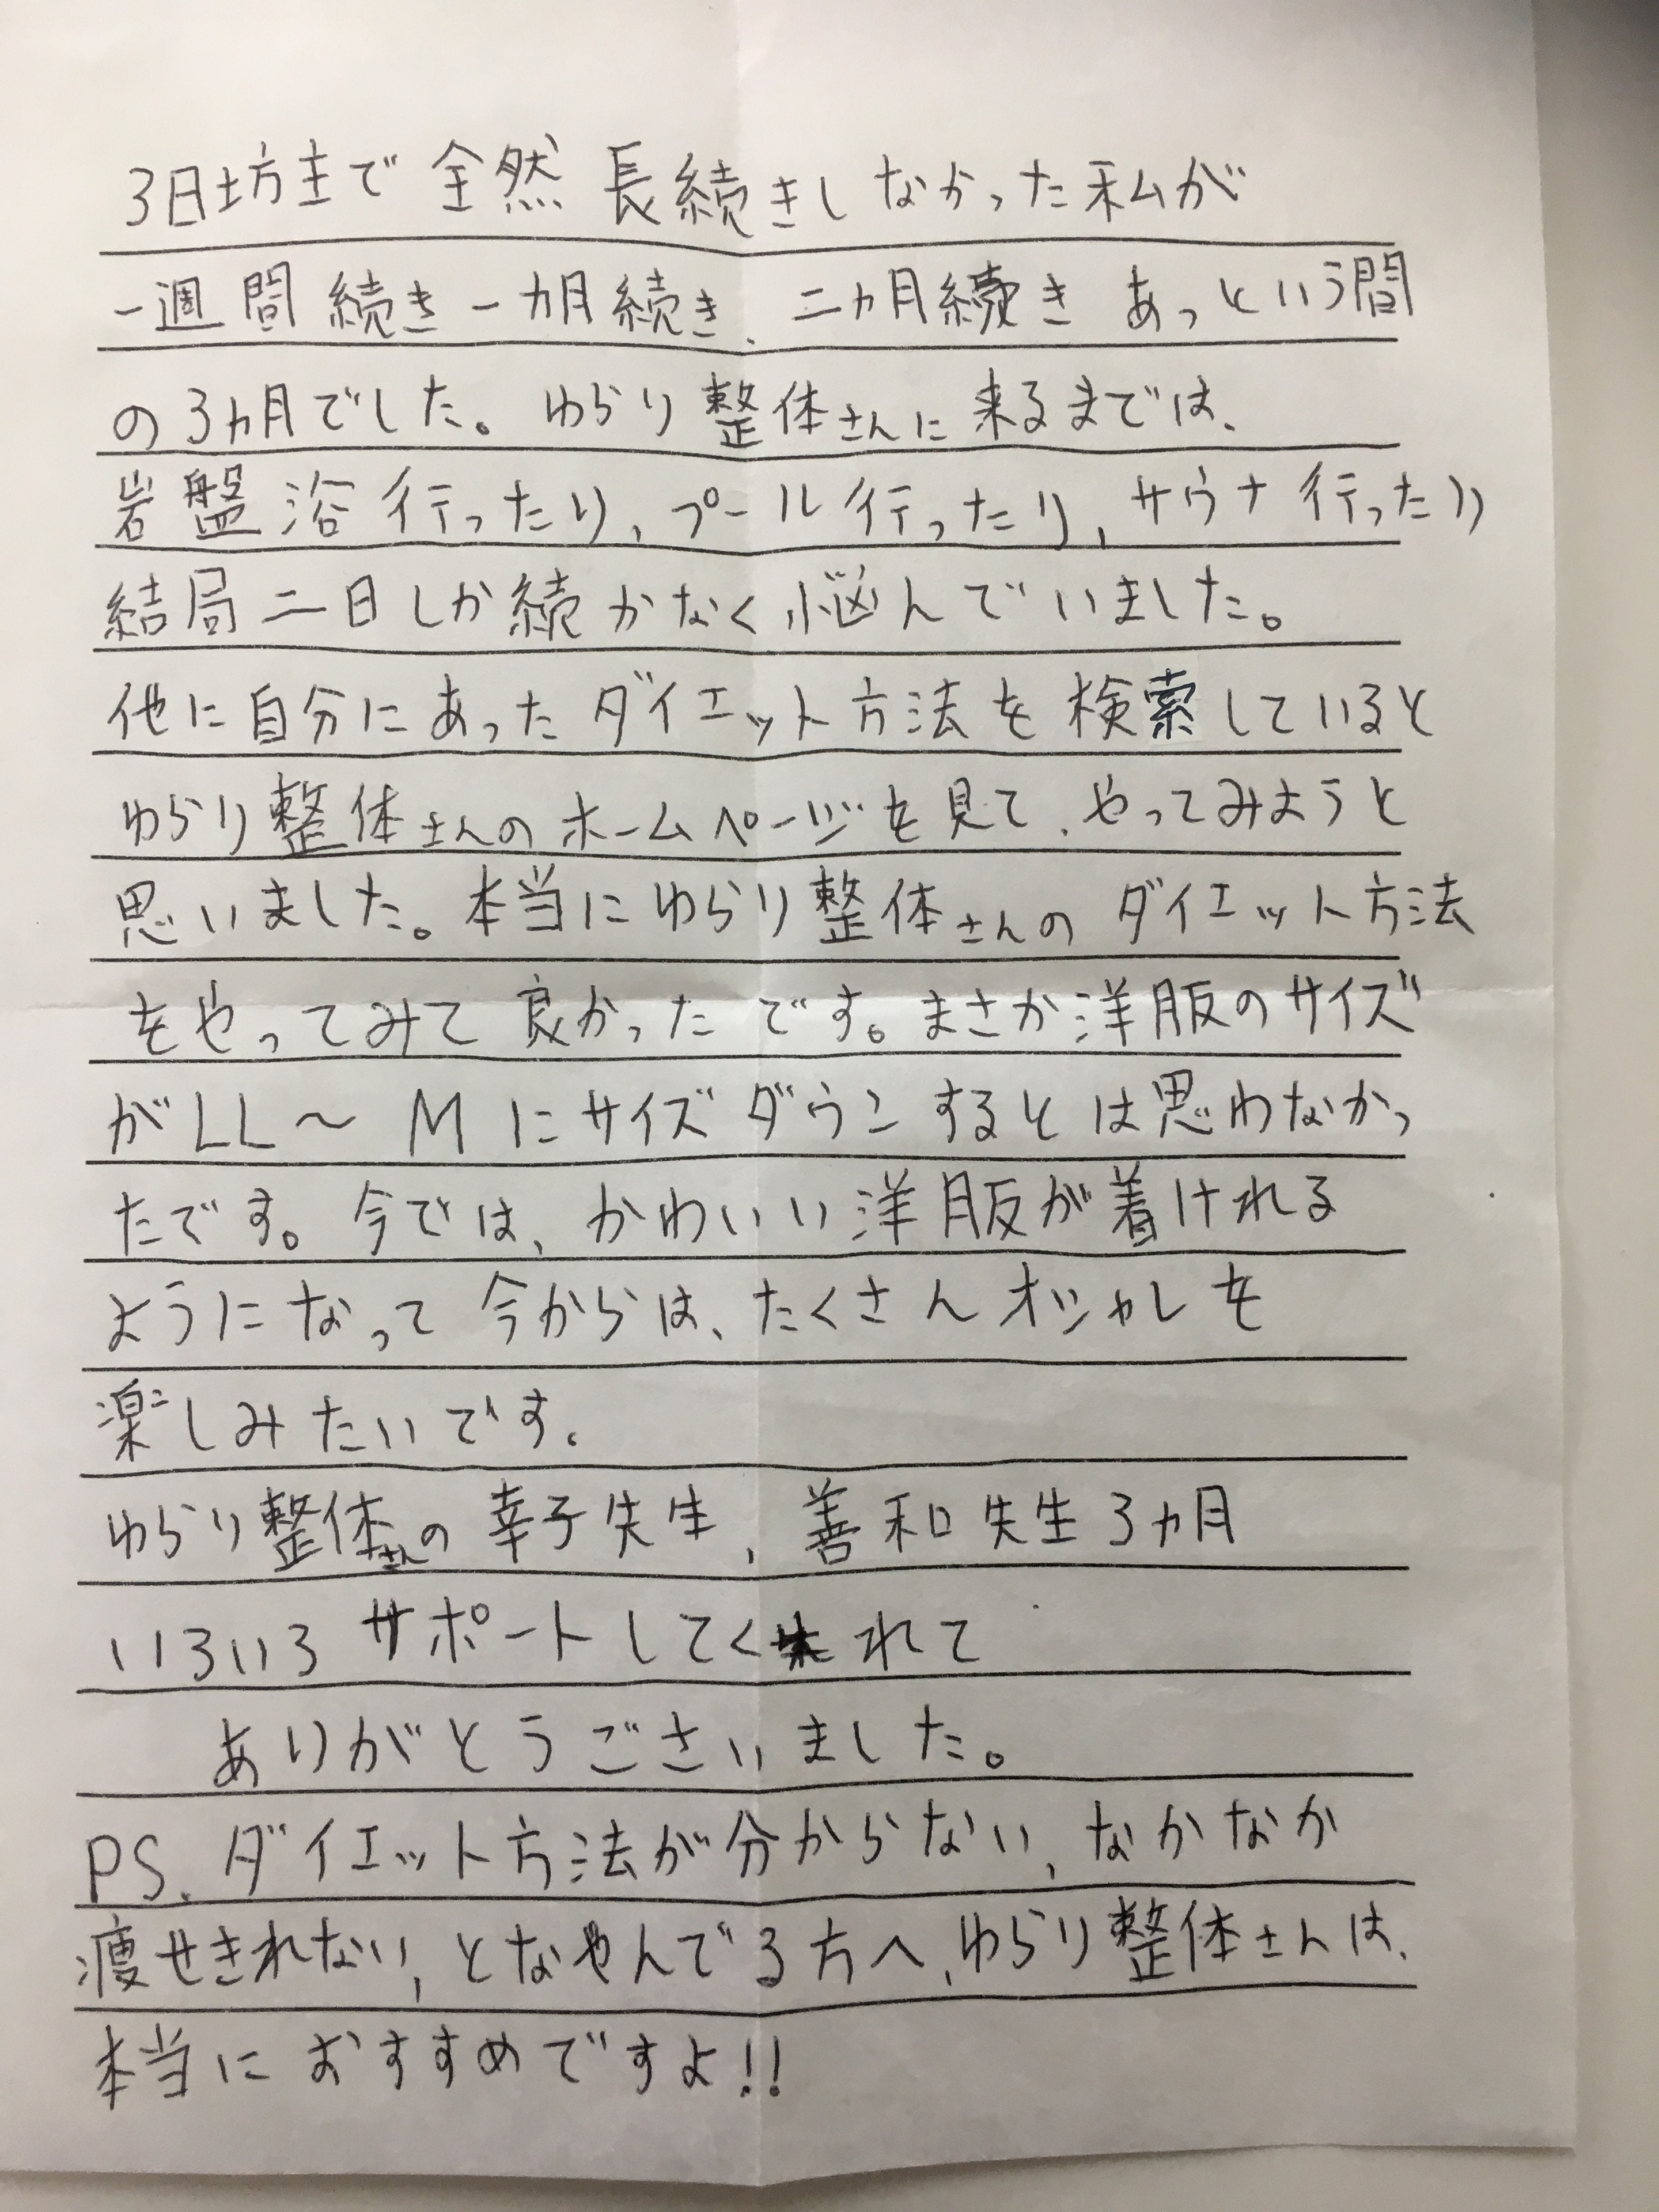 3日坊主で全然長続きしなかった私が
一週間続き一カ月続き、二ヵ月続きあっという間
の3ヵ月でした。ゆらり整体さんに来るまでは、
岩盤浴行ったり、プール行ったり、サウナ行ったり
結局二日しか続かなく悩んでいました。
他に自分にあったダイエット方法を検索していると
ゆらり整体さんのホームページを見て、やってみようと
思いました。本当にゆらり整体さんのダイエット方法
をやってみて良かったです。まさか洋服のサイズ
がLL〜Mにサイズダウンするとは思わなかっ
たです。今では、かわいい洋服が着けれる
ようになって今からは、たくさんオシャレを
楽しみたいです。
ゆらり整体さんの幸子先生、善和先生3ヵ月
いろいろサポートしてくれて
ありがとうございました。
PS、ダイエット方法が分からない、なかなか
痩せきれない、となやんでる方へ、ゆらり整体さんは、
本当におすすめですよ!!